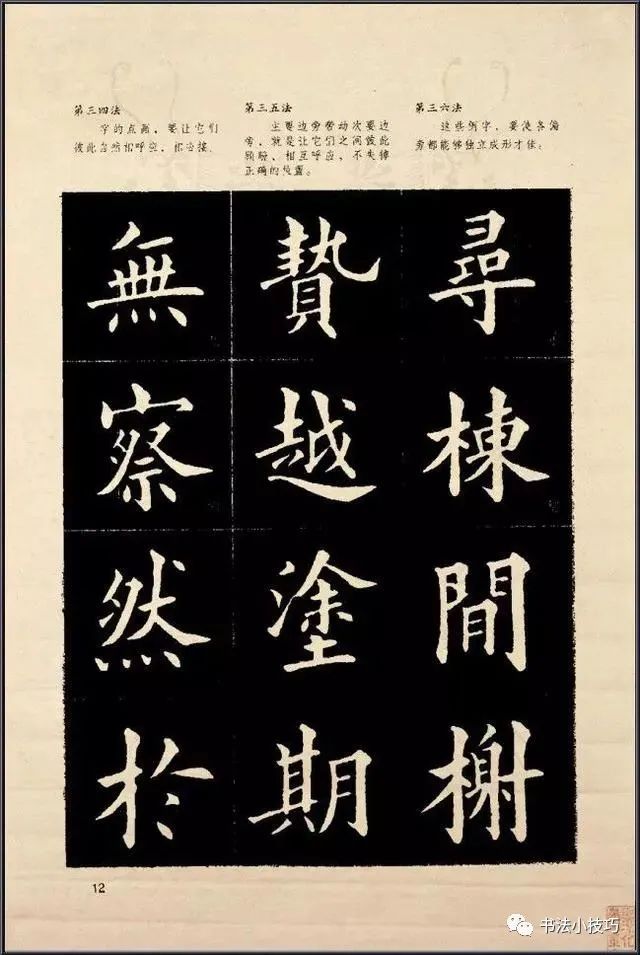 第三四法
字的点画，要让它们
彼此自然相呼应，相连接。
第三五法
主要边旁带动次要边
旁，就是让它们之间彼此
顾盼、相互呼应，不失掉
正确的位置。
第三六法
这些例字，要使各偏
旁都能够独立成形才佳。
無
察
然
於
贄
越
塗
期
尋
棟
間
榭
12
书法小技巧